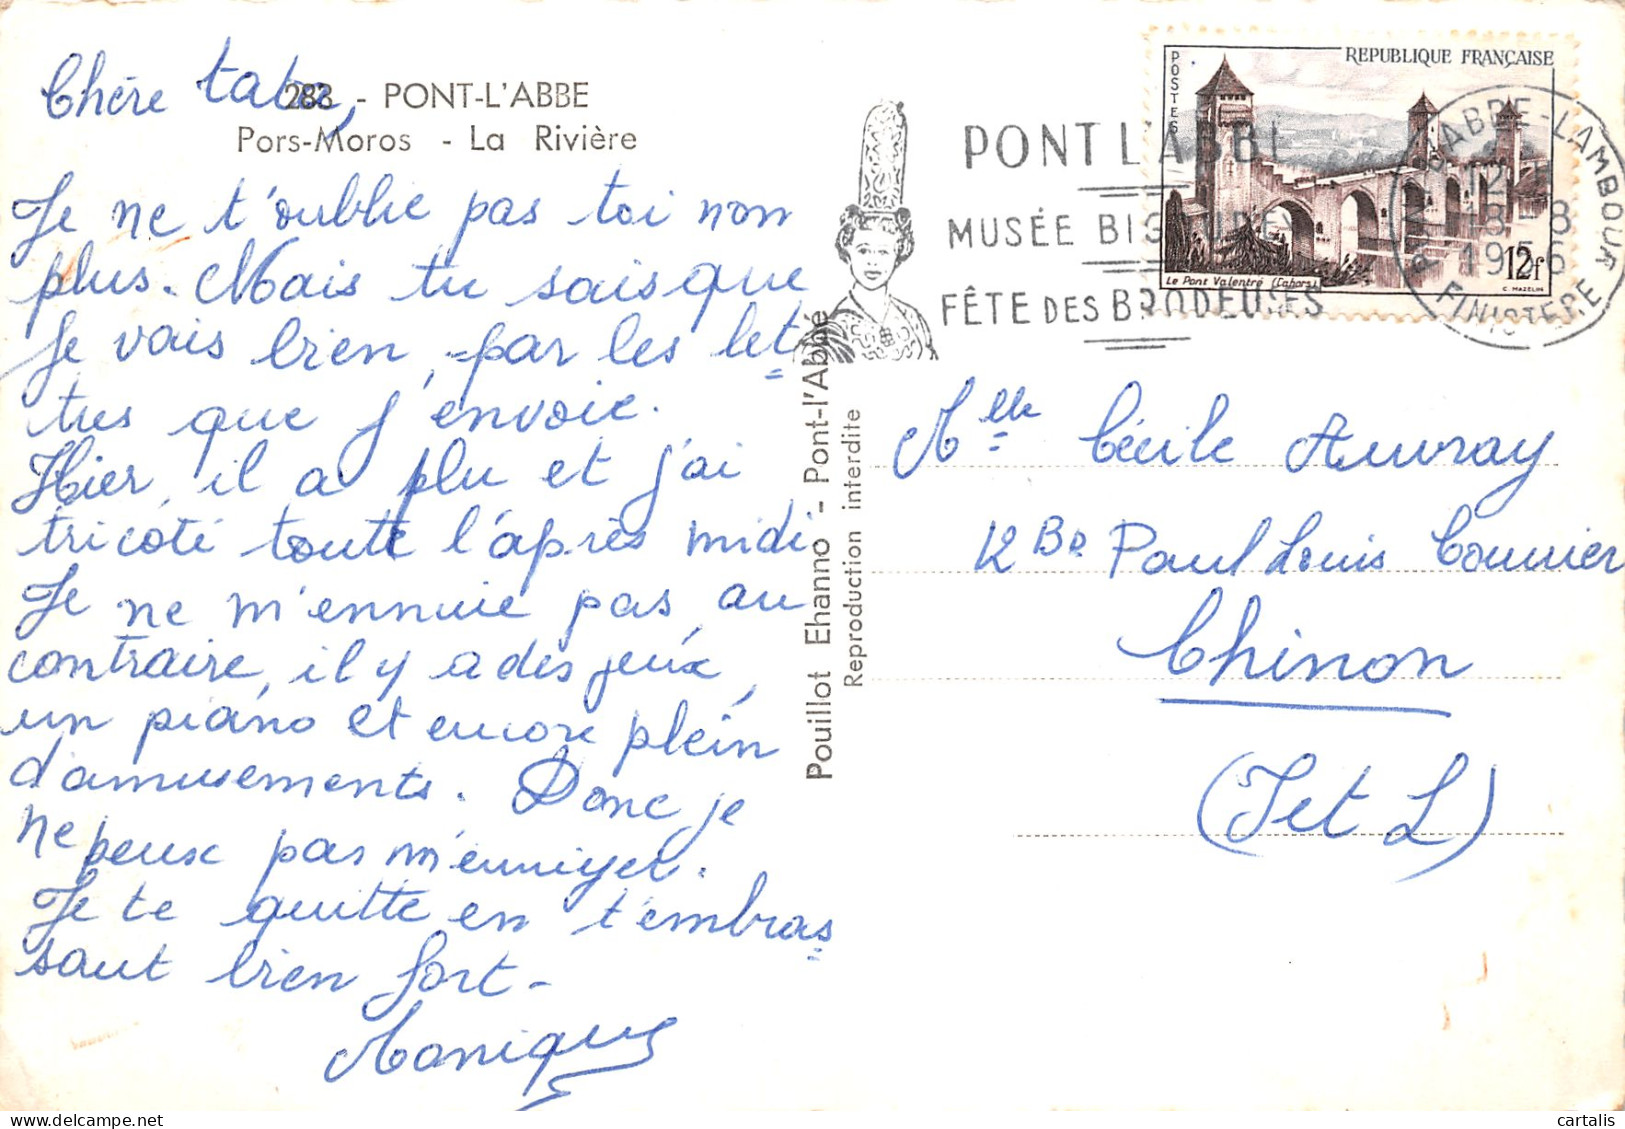 Chère tata,
283 - PONT-L'ABBE
Pors-Moros - La Rivière
Je ne t'oublie pas toi non
plus. Mais tu sais que
je vais bien, par les let
tres que j'envoie.
Hier, il a plu et j'ai
tricoté toute l'après midi
Je ne m'ennuie pas au
contraire, il y a des jeux,
un piano et encore plein
d'amusements. Donc je
ne peux pas m'ennuyer.
Je te quitte en t'embras
sant bien fort -
Monique
Pouillot Ehanno - Pont-l'Abbé
Reproduction interdite
PONT L'ABBÉ
MUSÉE BIGOUDEN
FÊTE DES BRODEUSES
POSTES
REPUBLIQUE FRANÇAISE
Le Pont Valentré (Cahors)
12f
C. MAZELIN
PONT L'ABBE-LAMBOUR
12
18 - 8
1956
FINISTERE
Mlle Cécile Auvray
12 Bd Paul Louis Courrier
Chinon
(I et L)
delcampe.net
cartalis